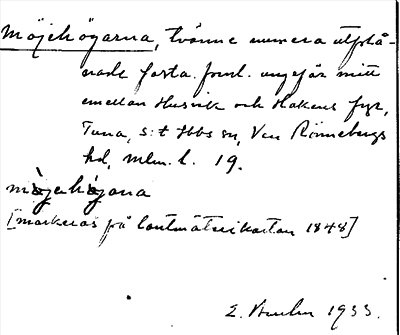 Möjehögarna, tvänne numera utplå-
nade fasta forl. ungefär mitt
emellan Husvik och Hakens fyr,
Tuna, s:t Ibbs sn, Ven Rönnebergs
hd, Mlm. l. 19.
mòjehògana
[markeras på lantmäterikartan 1848]
1933.